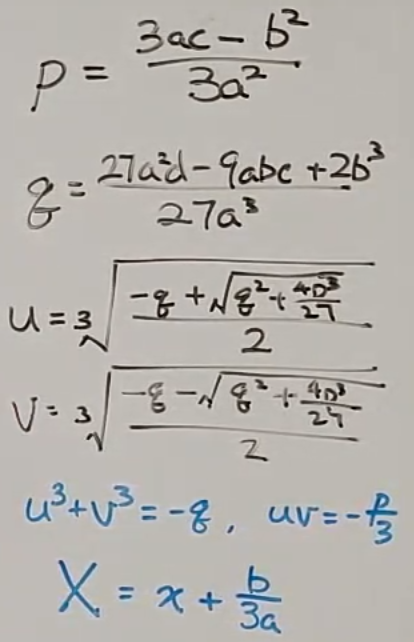 p = (3ac - b²)/(3a²)
q = (27a²d - 9abc + 2b³)/(27a³)
u = ³√((-q + √(q² + 4p³/27))/2)
v = ³√((-q - √(q² + 4p³/27))/2)
u³ + v³ = -q, uv = -p/3
X = x + b/(3a)